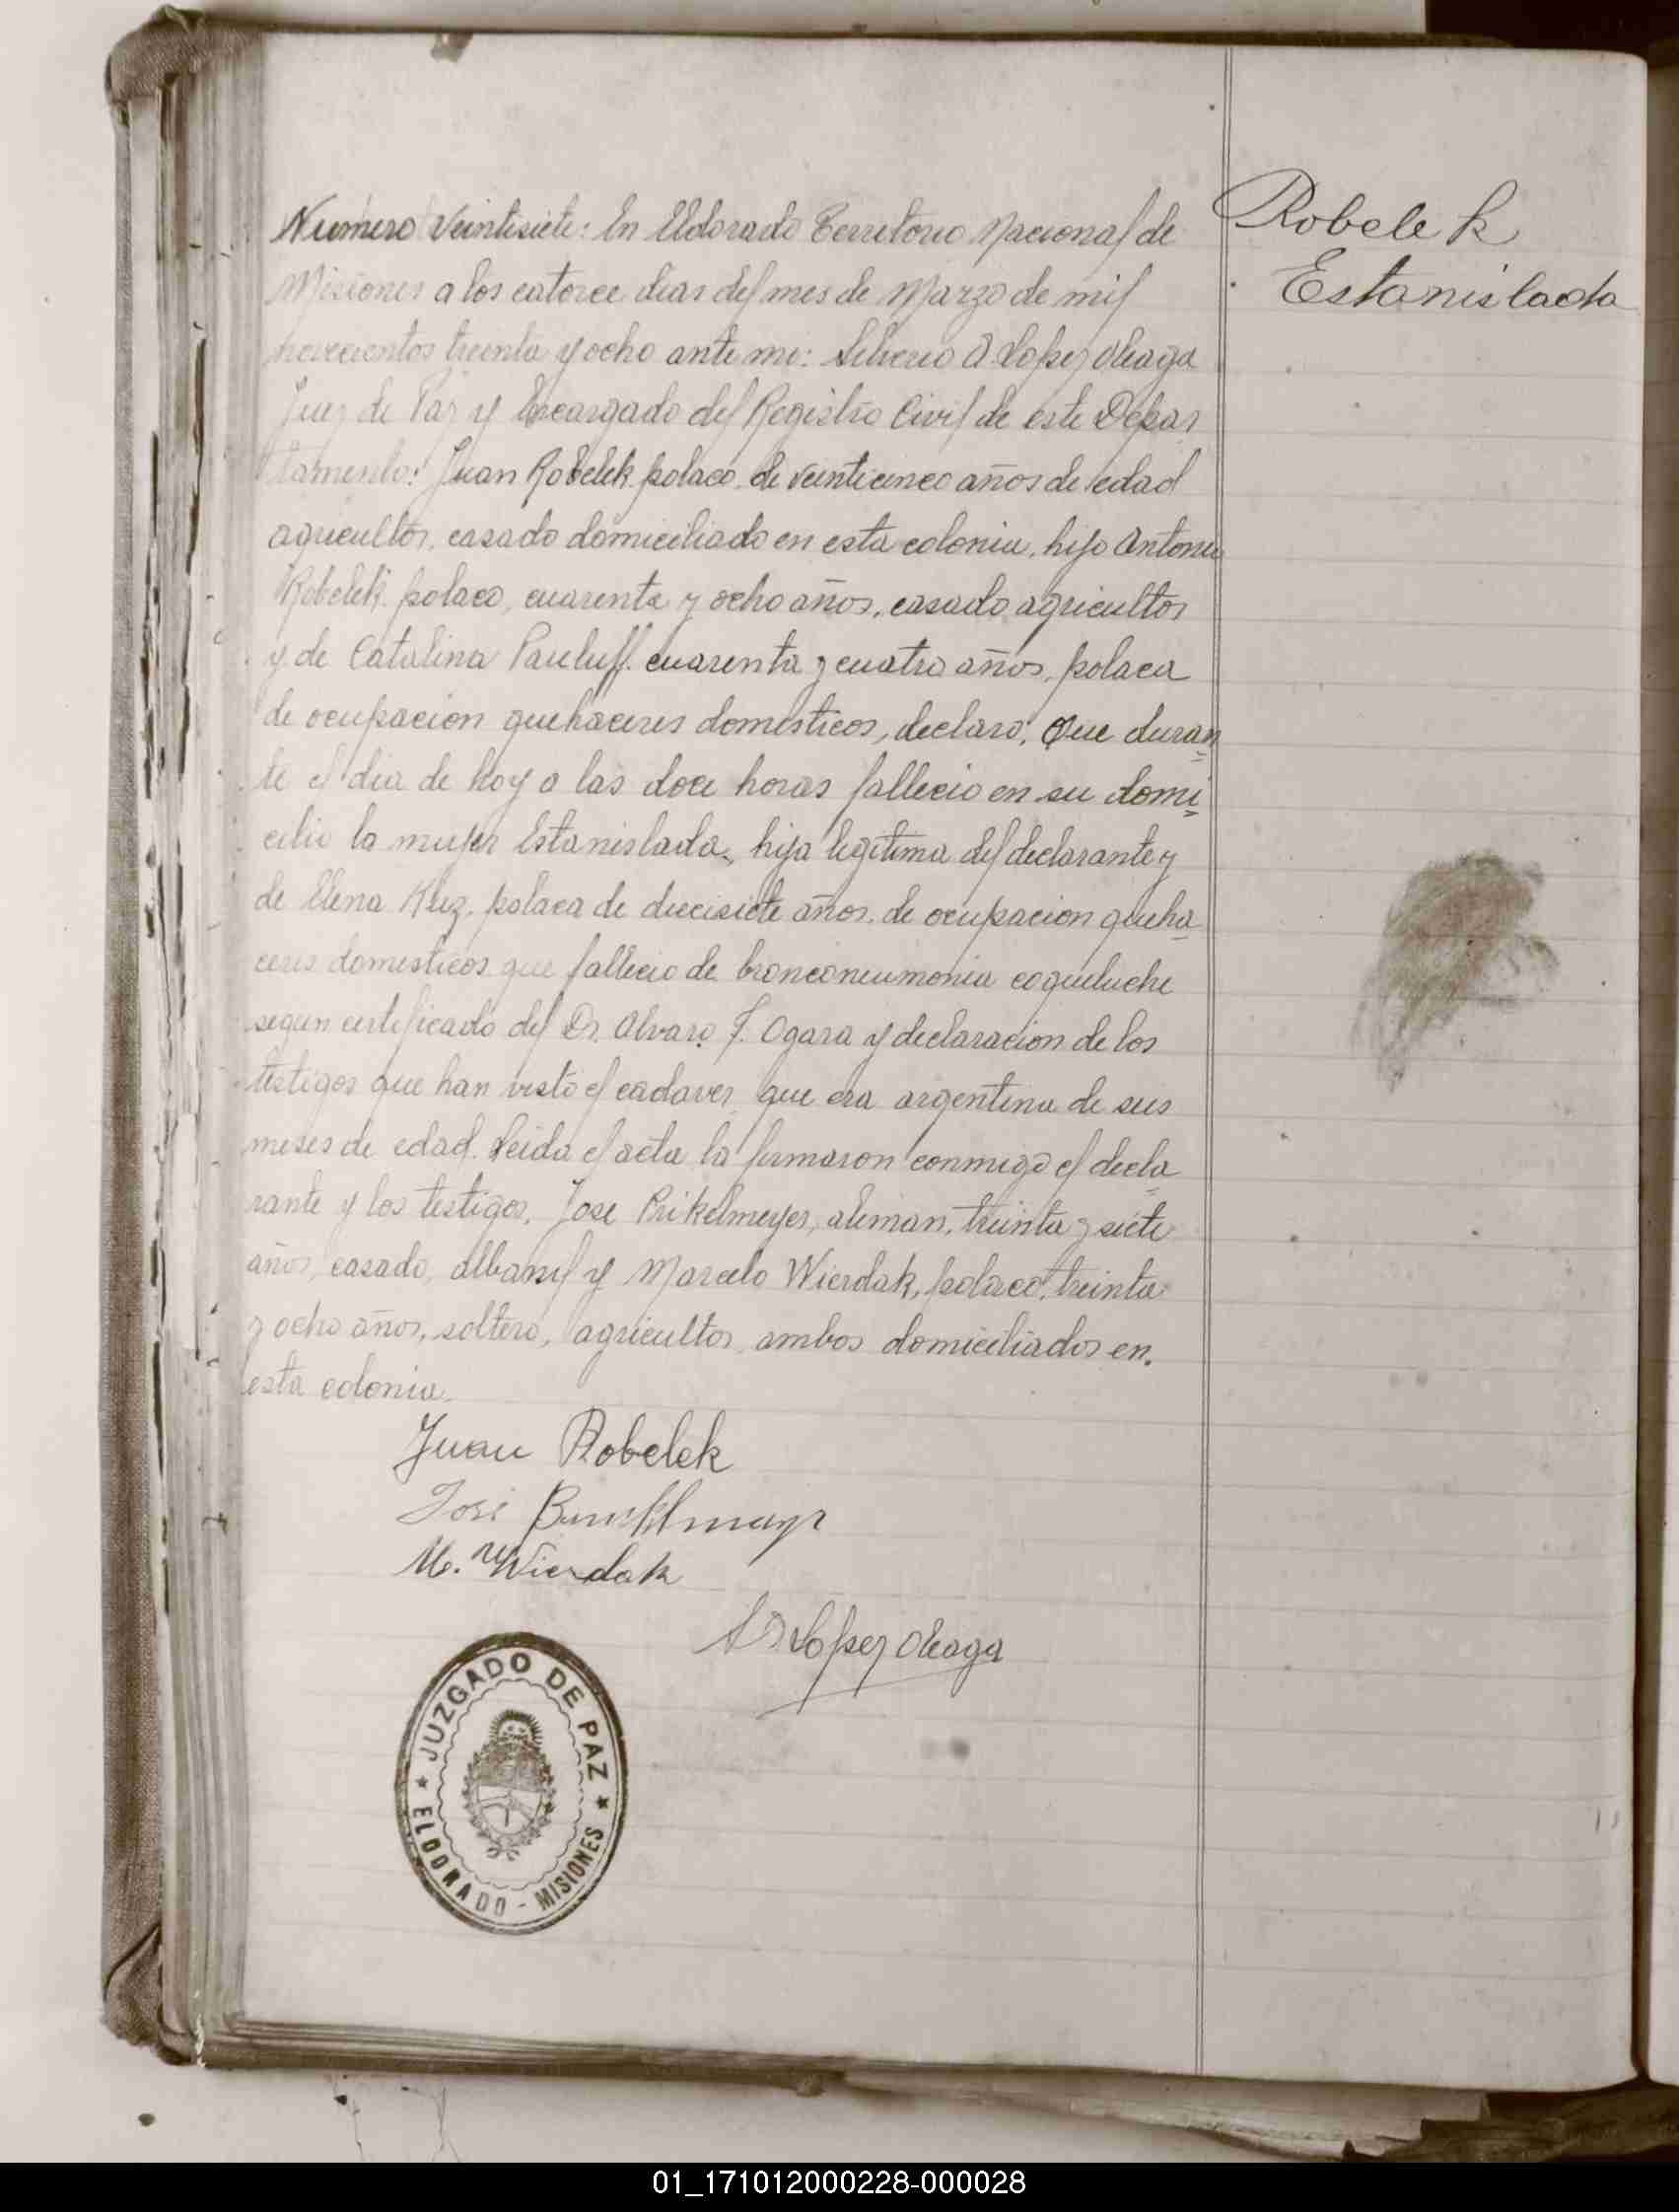 Numero Veintisiete: En Eldorado Territorio Nacional de
Misiones a los catorce dias del mes de Marzo de mil
novecientos treinta y ocho ante mi: Silverio A. Lopez Aleaga
Juez de Paz y Encargado del Registro Civil de este Depar
tamento: Juan Robelek polaco de veinticinco años de edad
agricultor, casado domiciliado en esta colonia, hijo Antonio
Robelek polaco, cuarenta y ocho años, casado agricultor
y de Catalina Pauluff cuarenta y cuatro años, polaca
de ocupacion quehaceres domesticos, declaró: Que duran
te el dia de hoy a las doce horas fallecio en su domi
cilio la mujer Estanislada, hija legitima del declarante y
de Elena Kluz, polaca de diecisiete años, de ocupacion queha
ceres domesticos que fallecio de bronconeumonia coqueluche
segun certificado del Dr. Alvaro F. Ogara y declaracion de los
testigos que han visto el cadaver, que era argentina de seis
meses de edad. Leida el acta la firmaron conmigo el decla
rante y los testigos, Jose Prikelmeyer, aleman, treinta y siete
años, casado, albanil y Marcelo Wierdak, polaco, treinta
y ocho años, soltero, agricultor ambos domiciliados en
esta colonia.
Juan Robelek
José
M. Wierdak
S A Lopez Aleaga
Robelek
Estanislada
JUZGADO DE PAZ
ELDORADO - MISIONES
01_171012000228-000028